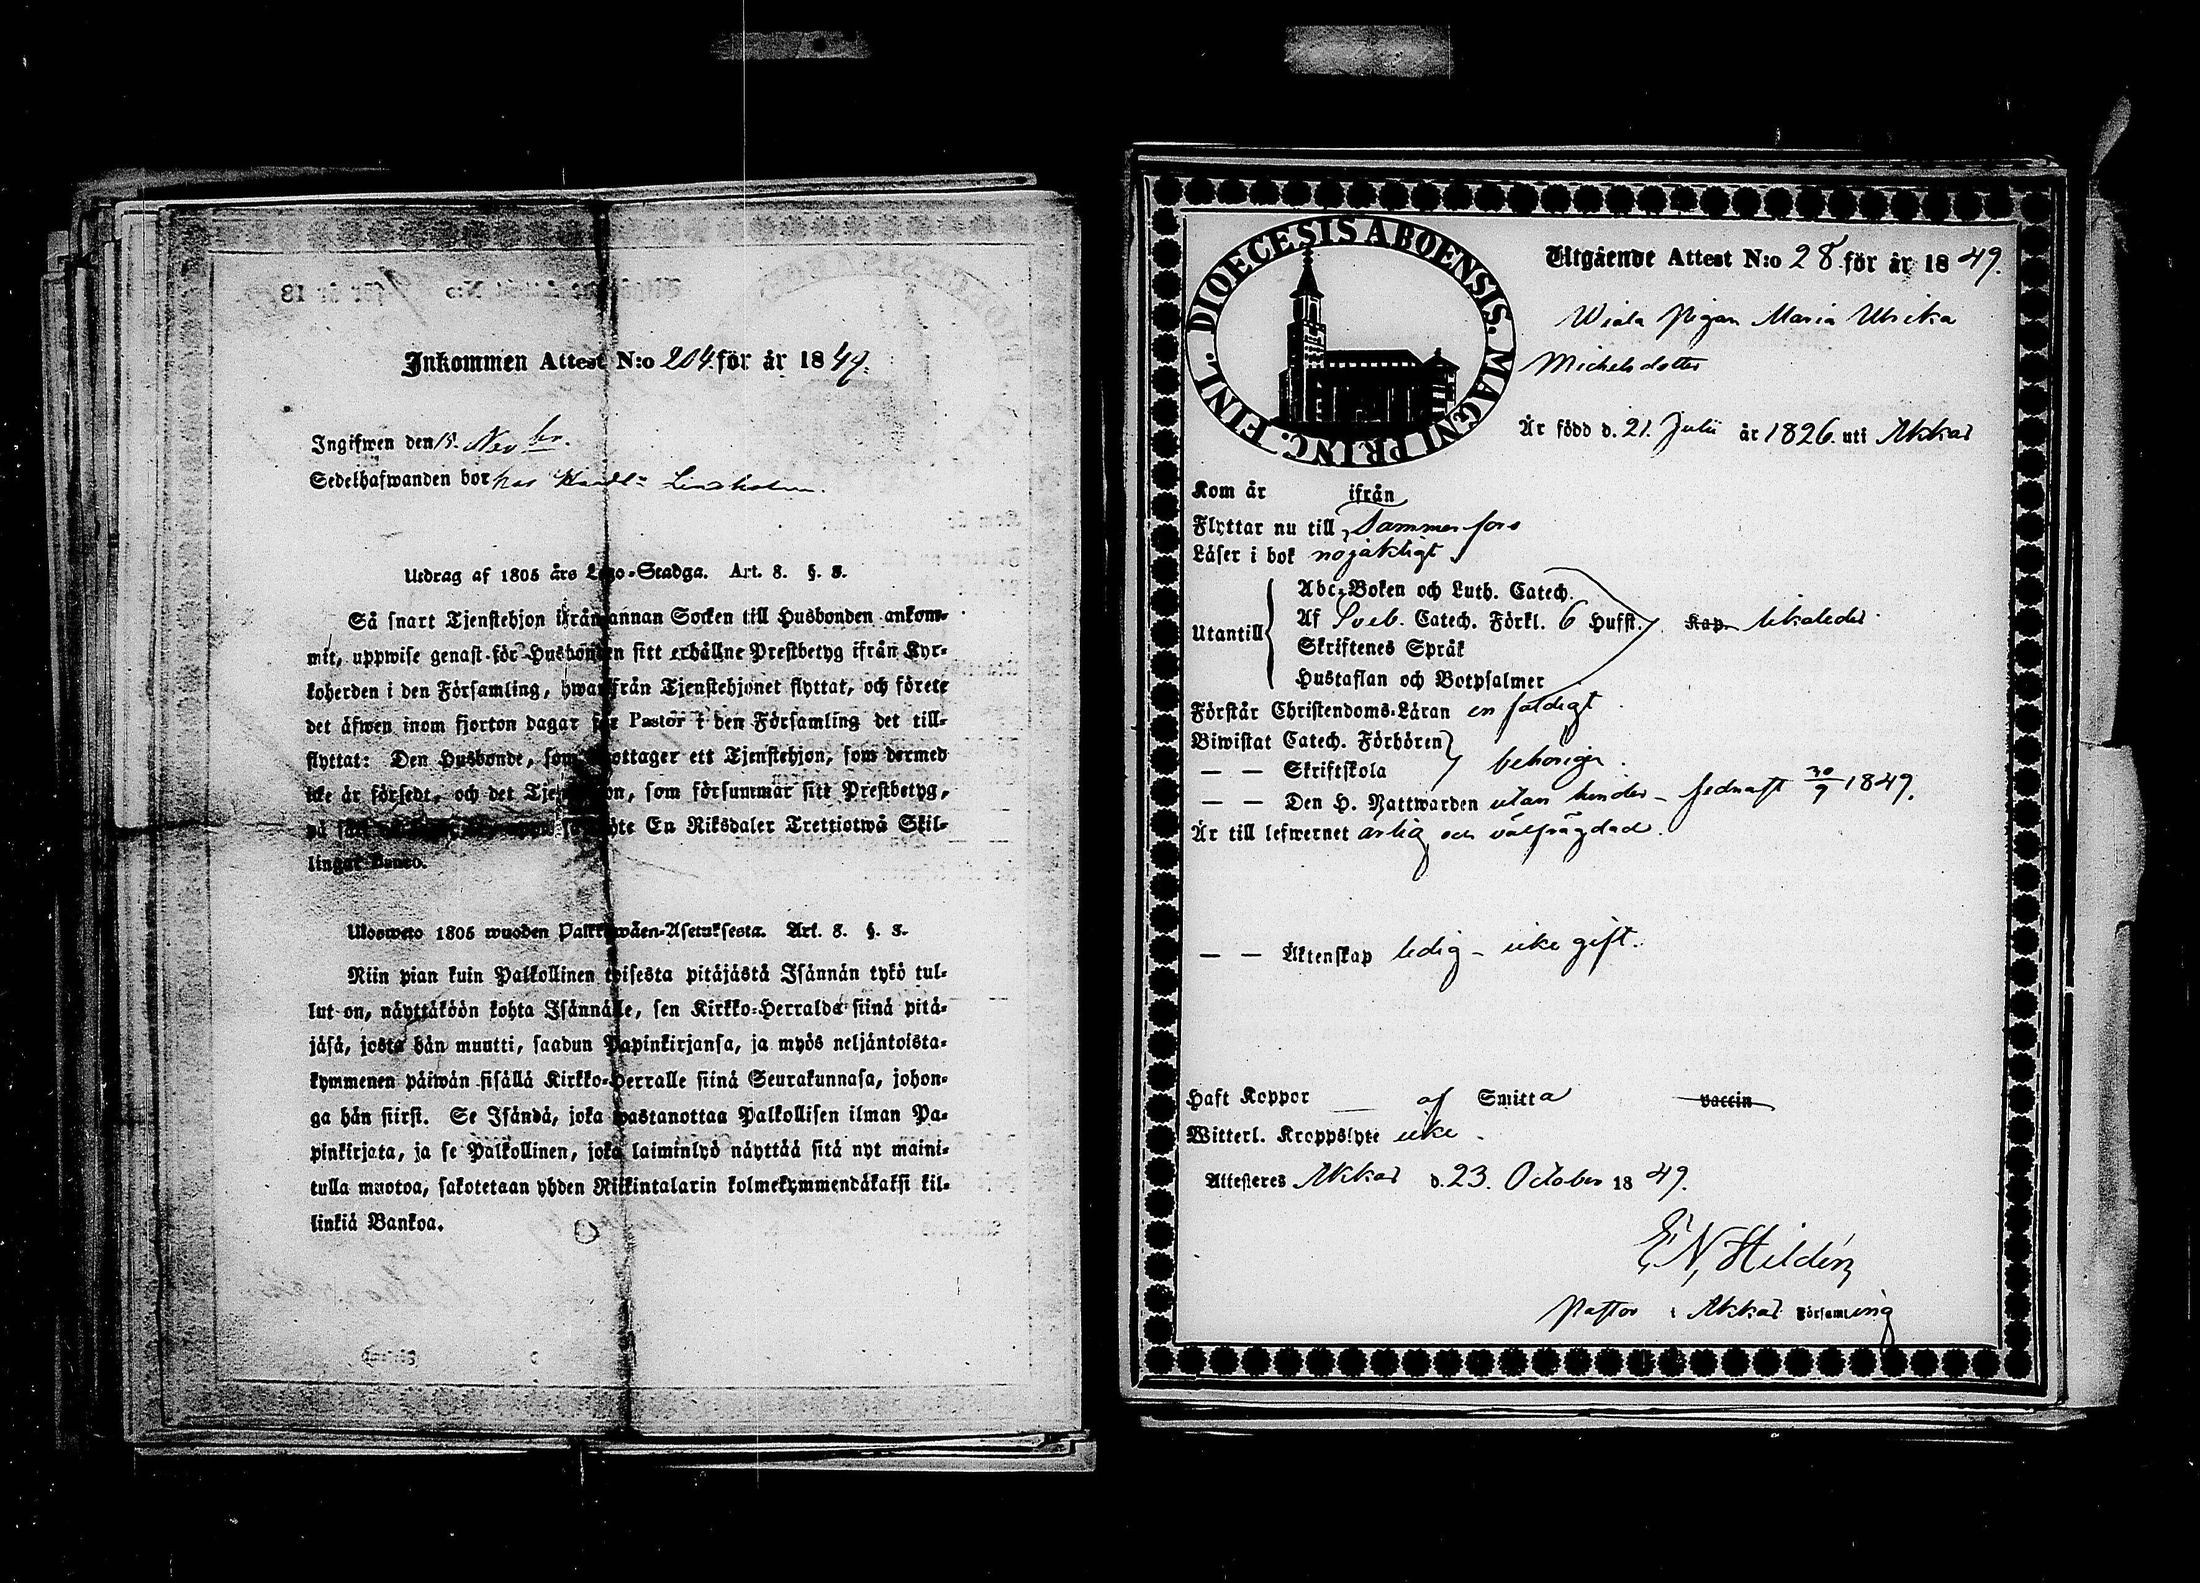 Inkommen Attest N:o 204 för år 1849.
Ingifwen den 15. Novbr.
Sedelhafwanden bor hos Handl. Lindholm.
Utdrag af 1805 års Lego-Stadga. Art. 8. §. 8.
Så snart Tjenstehjon ifrån annan Socken till Husbonden ankom-
mit, uppwise genast för Husbonden sitt erhållne Prestbetyg ifrån Kyr-
koherden i den Församling, hwarifrån Tjenstehjonet flyttat, och förete
det äfwen inom fjorton dagar för Pastor i den Församling det till-
flyttat: Den Husbonde, som mottager ett Tjenstehjon, som dermed
icke är försedt, och det Tjenstehjon, som försummar sitt Prestbetyg,
på sätt böte En Riksdaler Trettiotwå Skil-
lingar Banco.
Ulosweto 1805 wuoden Palkkawäen-Asetuksesta. Art. 8. §. 8.
Niin pian kuin Palkollinen toisesta pitäjästä Isännän tykö tul-
lut on, näyttäköön kohta Isännälle, sen Kirkko-Herralda siinä pitä-
jäsä, josta hän muutti, saadun Papinkirjansa, ja myös neljäntoista-
kymmenen päiwän sisällä Kirkko-Herralle siinä Seurakunnasa, johon-
ga hän siirsi. Se Isändä, joka wastanottaa Palkollisen ilman Pa-
pinkirjata, ja se Palkollinen, joka laiminlyö näyttää sitä nyt maini-
tulla muotoa, sakotetaan yhden Riikintalarin kolmekymmendäkaksi kil-
linkiä Bankoa.
DIOECESIS ABOENSIS. MAGNI PRINC. FINL.
Utgående Attest N:o 28 för år 1849.
Wiala Pigan Maria Ulrika
Michelsdotter
Är född d. 21. Julii år 1826 uti Akkas
Kom år ifrån
Flyttar nu till Tammerfors
Läser i bok nojaktigt
Abc-Boken och Luth. Catech.
Utantill Af Sveb. Catech. Förkl. 6 Hufst. Kap. likaledes
Skriftenes Språk
Hustaflan och Botpsalmer
Förstår Christendoms-Läran enfaldigt
Biwistat Catech. Förhören
— — Skriftskola behörigen.
— — Den H. Nattwarden utan hinder – sednast 30/9 1849.
Är till lefwernet ärlig och välfrägdad.
— — Äktenskap ledig – icke gift.
Haft Koppor af Smitta vaccin
Witterl. Kroppslyte icke.
Attesteres Akkas d. 23. October 1849.
E, N, Hildén
Pastor i Akkas Församling